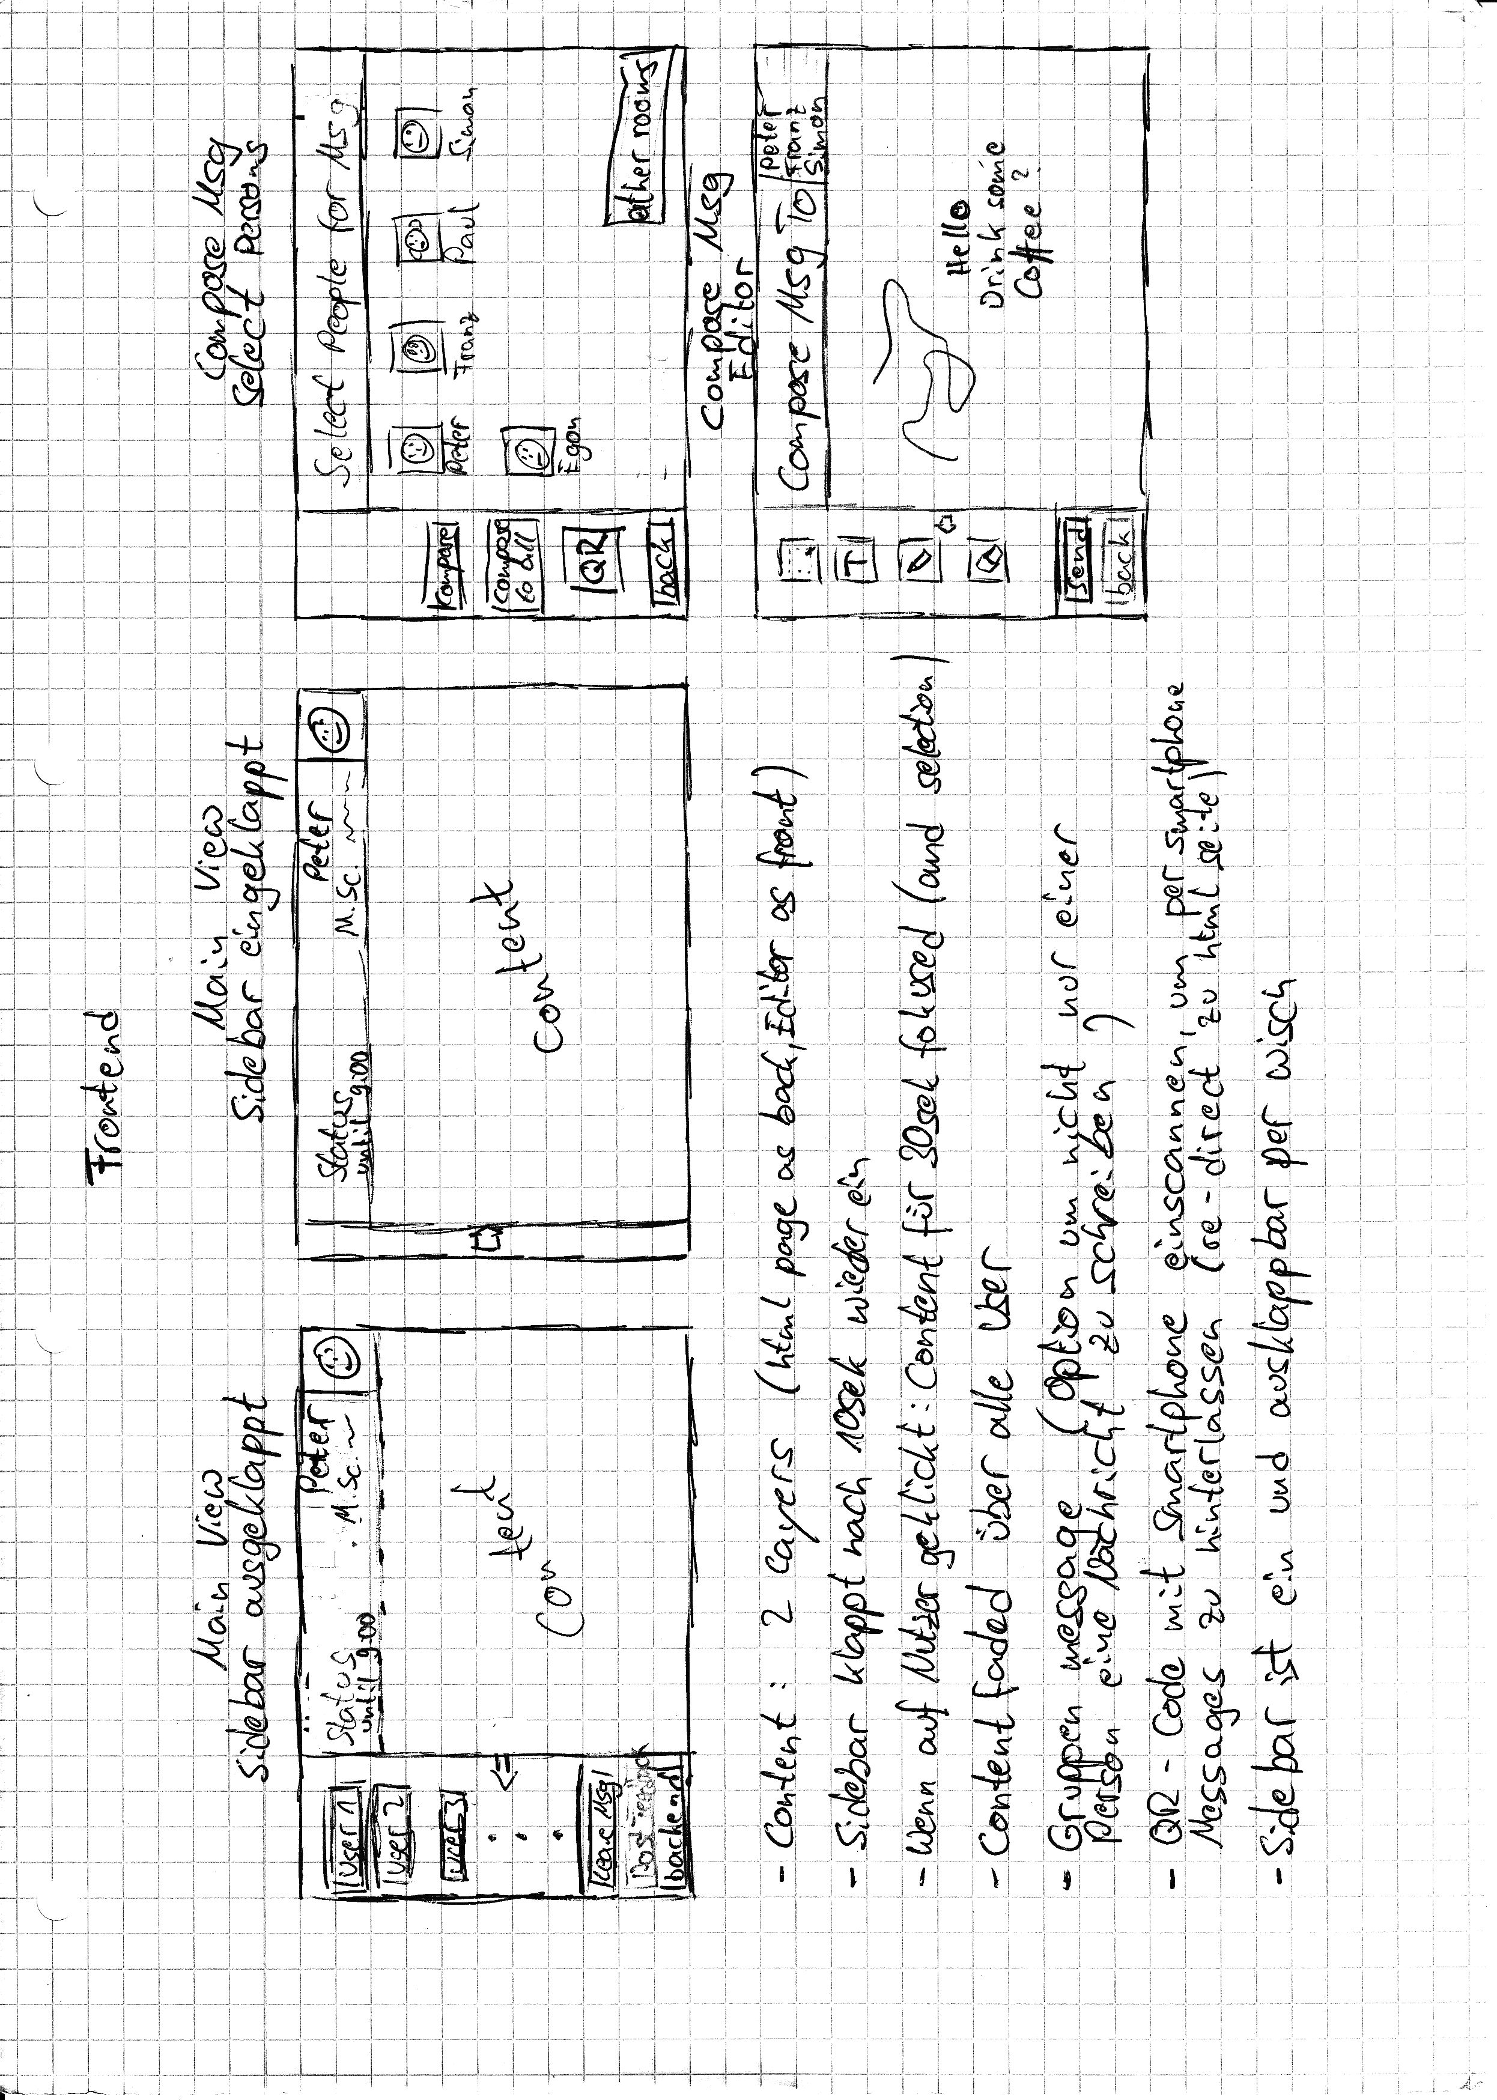 Frontend
Main View
Sidebar ausgeklappt
User 1
User 2
User 3
Leave Msg
backend
Status
until 9:00
Peter
M.Sc.
Content
Main View
Sidebar eingeklappt
Status
until 9:00
Peter
M.Sc.
content
Compose Msg
Select Persons
Select People for Msg
Kompose
Compose
to all
QR
back
Peter
Franz
Paul
Simon
Egon
other rooms
Compose Msg
Editor
Compose Msg To
Peter
Franz
Simon
T
Send
back
Hello
Drink some
Coffee?
- Content: 2 Layers (html page as back, Editor as front)
- Sidebar klappt nach 10sek wieder ein
- Wenn auf Nutzer geklickt: Content für 30sek fokused (and selection)
- Content faded über alle User
- Gruppen message (Option um nicht nur einer
Person eine Nachricht zu schreiben)
- QR-Code mit Smartphone einscannen, um per smartphone
Messages zu hinterlassen (re-direct zu html seite)
- Sidebar ist ein und ausklappbar per wisch